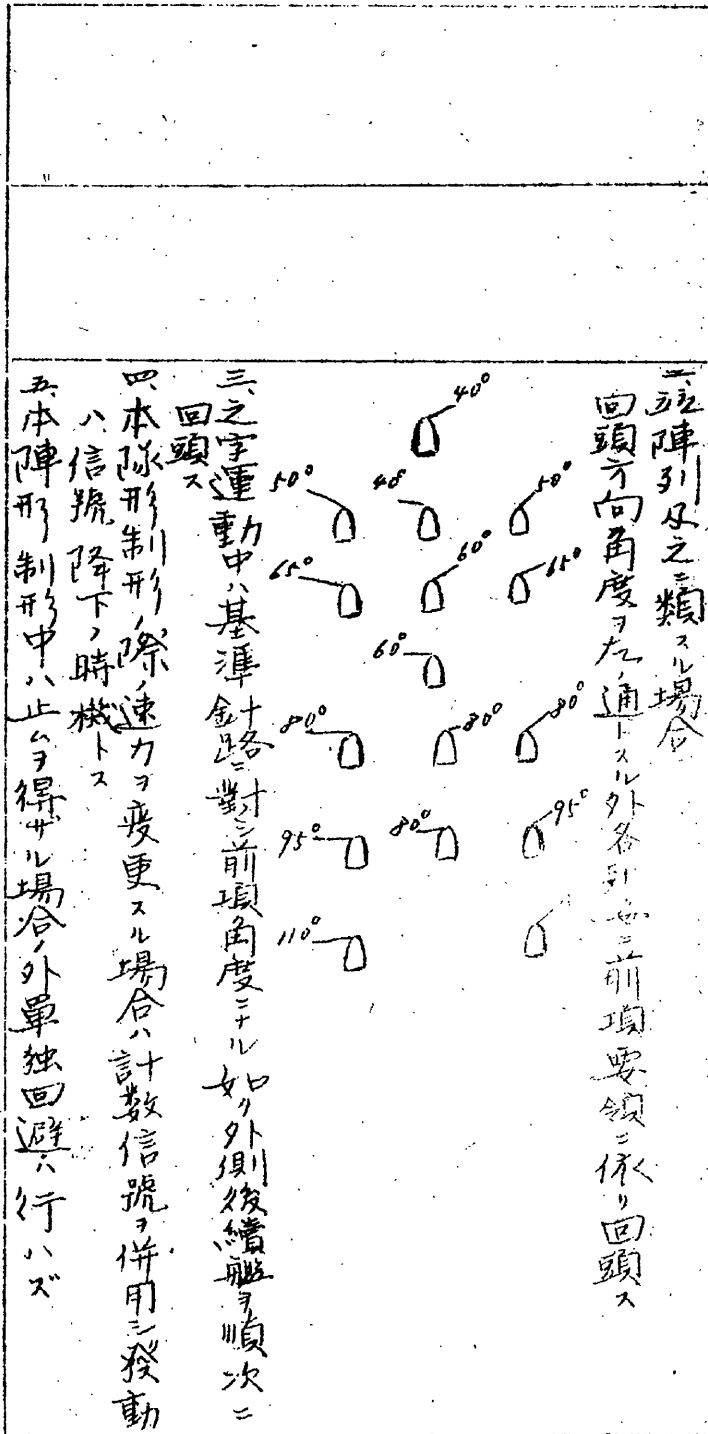 二、立陣列及之ニ類スル場合
回頭方向角度ヲ左ノ通トスル外各列毎ニ前項要領ニ依リ回頭ス
40°
50° 40° 50°
65° 60° 65°
60°
80° 80° 80°
95° 80° 95°
110°
三、之字運動中ハ基準針路ニ對シ前項角度ニナル如ク外側後續艦ヨリ順次ニ
回頭ス
四、本隊形制形ノ際速力ヲ変更スル場合ハ計数信號ヲ併用シ発動
ハ信號降下ノ時機トス
五、本陣形制形中ハ止ムヲ得ザル場合ノ外單独回避ハ行ハズ